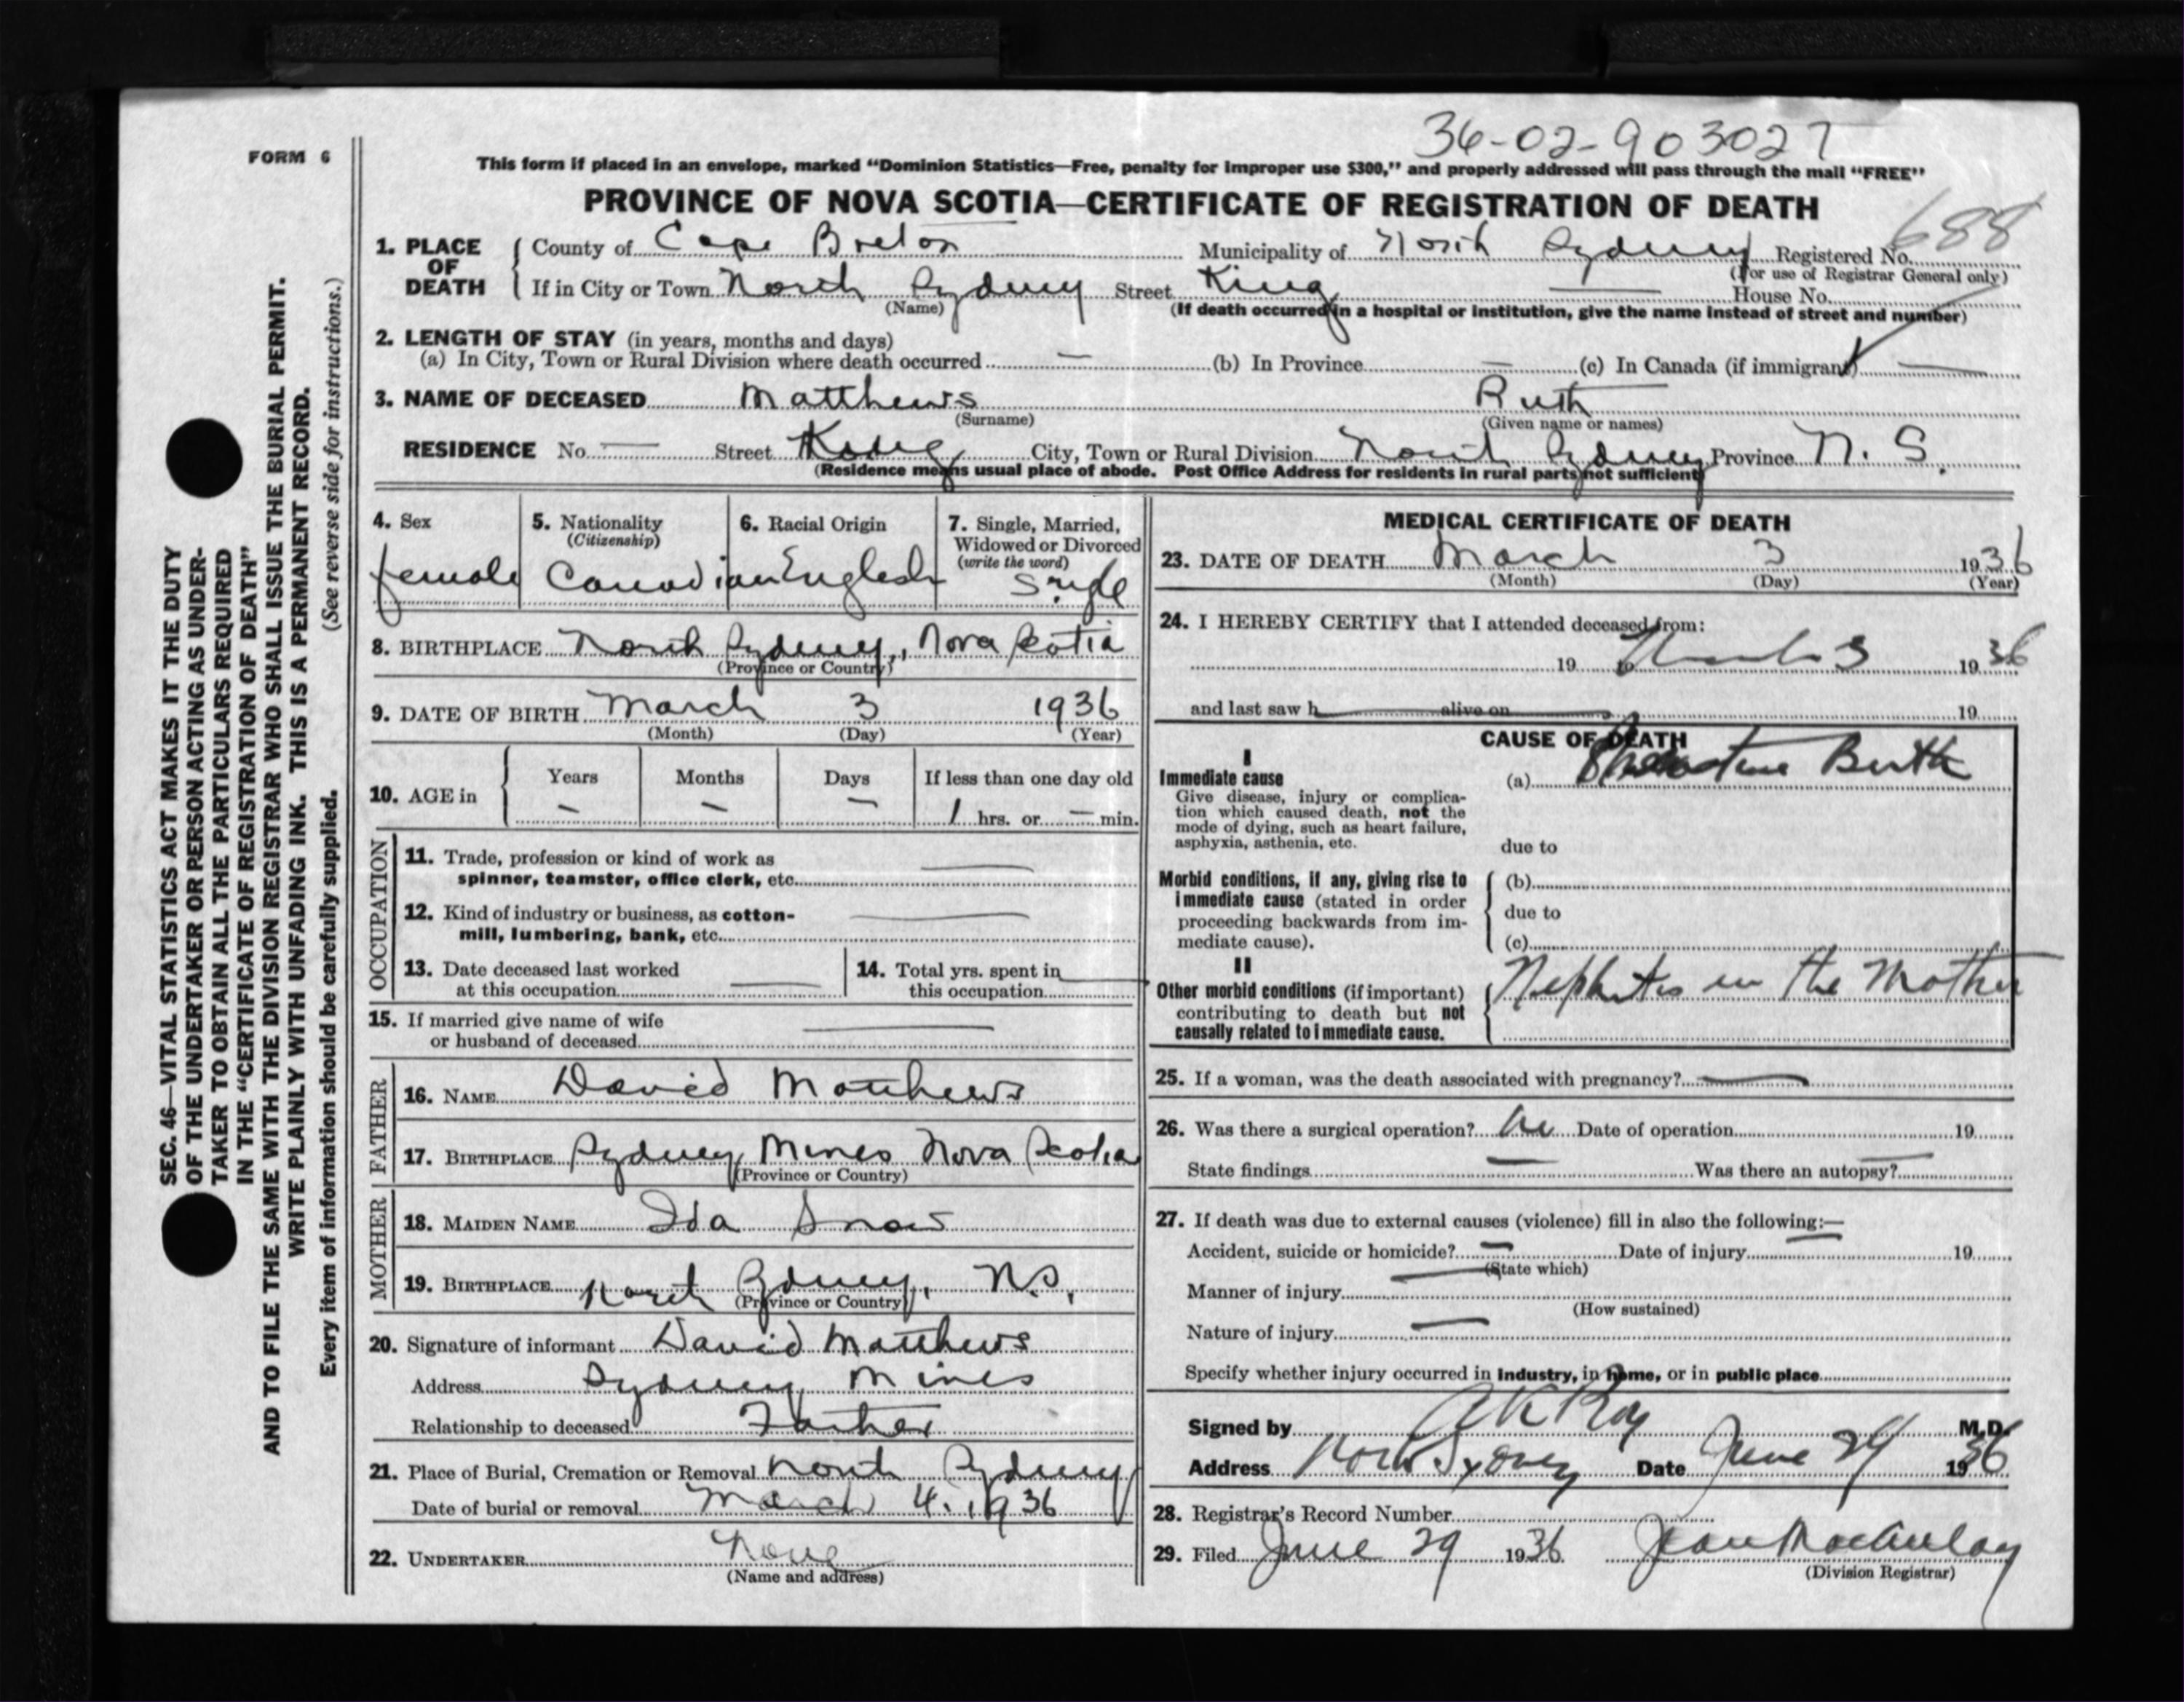 36-02-903027
FORM 6
This form if placed in an envelope, marked "Dominion Statistics—Free, penalty for improper use $300," and properly addressed will pass through the mail "FREE"
PROVINCE OF NOVA SCOTIA—CERTIFICATE OF REGISTRATION OF DEATH
688
1. PLACE OF DEATH County of Cape Breton Municipality of North Sydney Registered No.
(For use of Registrar General only)
If in City or Town North Sydney Street King House No.
(Name) (If death occurred in a hospital or institution, give the name instead of street and number)
2. LENGTH OF STAY (in years, months and days)
(a) In City, Town or Rural Division where death occurred — (b) In Province — (c) In Canada (if immigrant) —
3. NAME OF DECEASED Matthews Ruth
(Surname) (Given name or names)
RESIDENCE No. — Street King City, Town or Rural Division North Sydney Province N. S.
(Residence means usual place of abode. Post Office Address for residents in rural parts not sufficient)
4. Sex 5. Nationality 6. Racial Origin 7. Single, Married,
(Citizenship) Widowed or Divorced
(write the word)
female Canadian English Single
8. BIRTHPLACE North Sydney, Nova Scotia
(Province or Country)
9. DATE OF BIRTH March 3 1936
(Month) (Day) (Year)
10. AGE in Years Months Days If less than one day old
— — — 1 hrs. or — min.
OCCUPATION
11. Trade, profession or kind of work as
spinner, teamster, office clerk, etc. —
12. Kind of industry or business, as cotton-
mill, lumbering, bank, etc. —
13. Date deceased last worked
at this occupation —
14. Total yrs. spent in
this occupation —
15. If married give name of wife
or husband of deceased —
FATHER
16. NAME David Matthews
17. BIRTHPLACE Sydney Mines Nova Scotia
(Province or Country)
MOTHER
18. MAIDEN NAME Ida Snow
19. BIRTHPLACE North Sydney, N.S.
(Province or Country)
20. Signature of informant David Matthews
Address Sydney Mines
Relationship to deceased Father
21. Place of Burial, Cremation or Removal North Sydney
Date of burial or removal March 4. 1936
22. UNDERTAKER None
(Name and address)
MEDICAL CERTIFICATE OF DEATH
23. DATE OF DEATH March 3 1936
(Month) (Day) (Year)
24. I HEREBY CERTIFY that I attended deceased from:
19 to March 3 1936
and last saw h alive on 19
CAUSE OF DEATH
I
Immediate cause (a) Birth
Give disease, injury or complica-
tion which caused death, not the
mode of dying, such as heart failure,
asphyxia, asthenia, etc.
due to
Morbid conditions, if any, giving rise to (b)
immediate cause (stated in order
due to
proceeding backwards from im-
mediate cause). (c)
II
Other morbid conditions (if important) Nephritis in the Mother
contributing to death but not
causally related to immediate cause.
25. If a woman, was the death associated with pregnancy? —
26. Was there a surgical operation? No Date of operation 19
State findings — Was there an autopsy? —
27. If death was due to external causes (violence) fill in also the following:—
Accident, suicide or homicide? — Date of injury — 19
(State which)
Manner of injury —
(How sustained)
Nature of injury —
Specify whether injury occurred in industry, in home, or in public place
Signed by A K Roy M.D.
Address North Sydney Date June 29 1936
28. Registrar's Record Number
29. Filed June 29 1936 Jean MacAulay
(Division Registrar)
SEC. 46—VITAL STATISTICS ACT MAKES IT THE DUTY
OF THE UNDERTAKER OR PERSON ACTING AS UNDER-
TAKER TO OBTAIN ALL THE PARTICULARS REQUIRED
IN THE "CERTIFICATE OF REGISTRATION OF DEATH"
AND TO FILE THE SAME WITH THE DIVISION REGISTRAR WHO SHALL ISSUE THE BURIAL PERMIT.
WRITE PLAINLY WITH UNFADING INK. THIS IS A PERMANENT RECORD.
Every item of information should be carefully supplied. (See reverse side for instructions.)